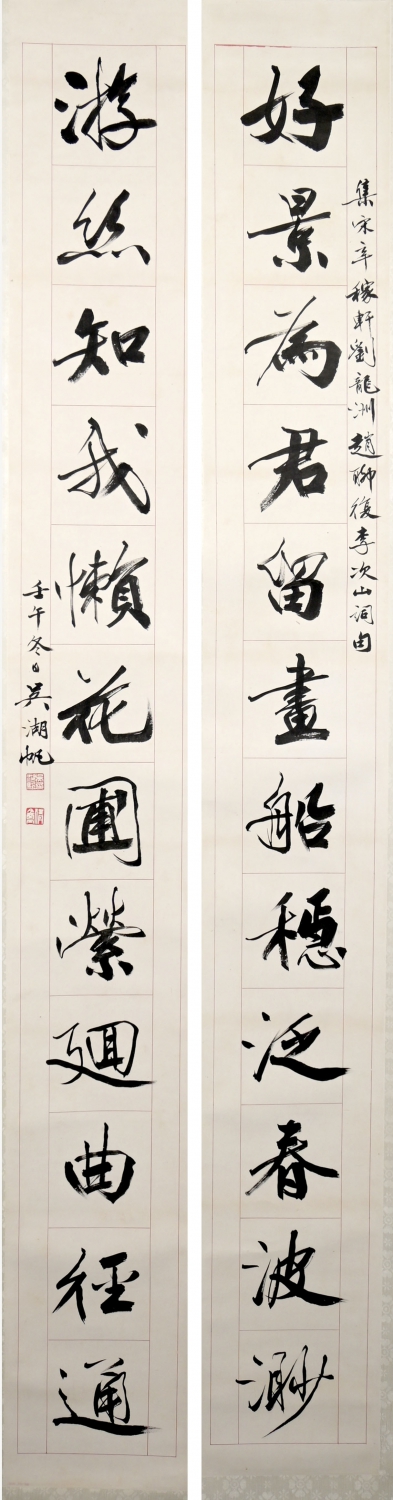 集宋辛稼軒劉龍洲趙聊復李次山詞句
好景為君留畫船穩泛春波渺
游絲知我懶花圃縈迴曲徑通
壬午冬日吳湖帆